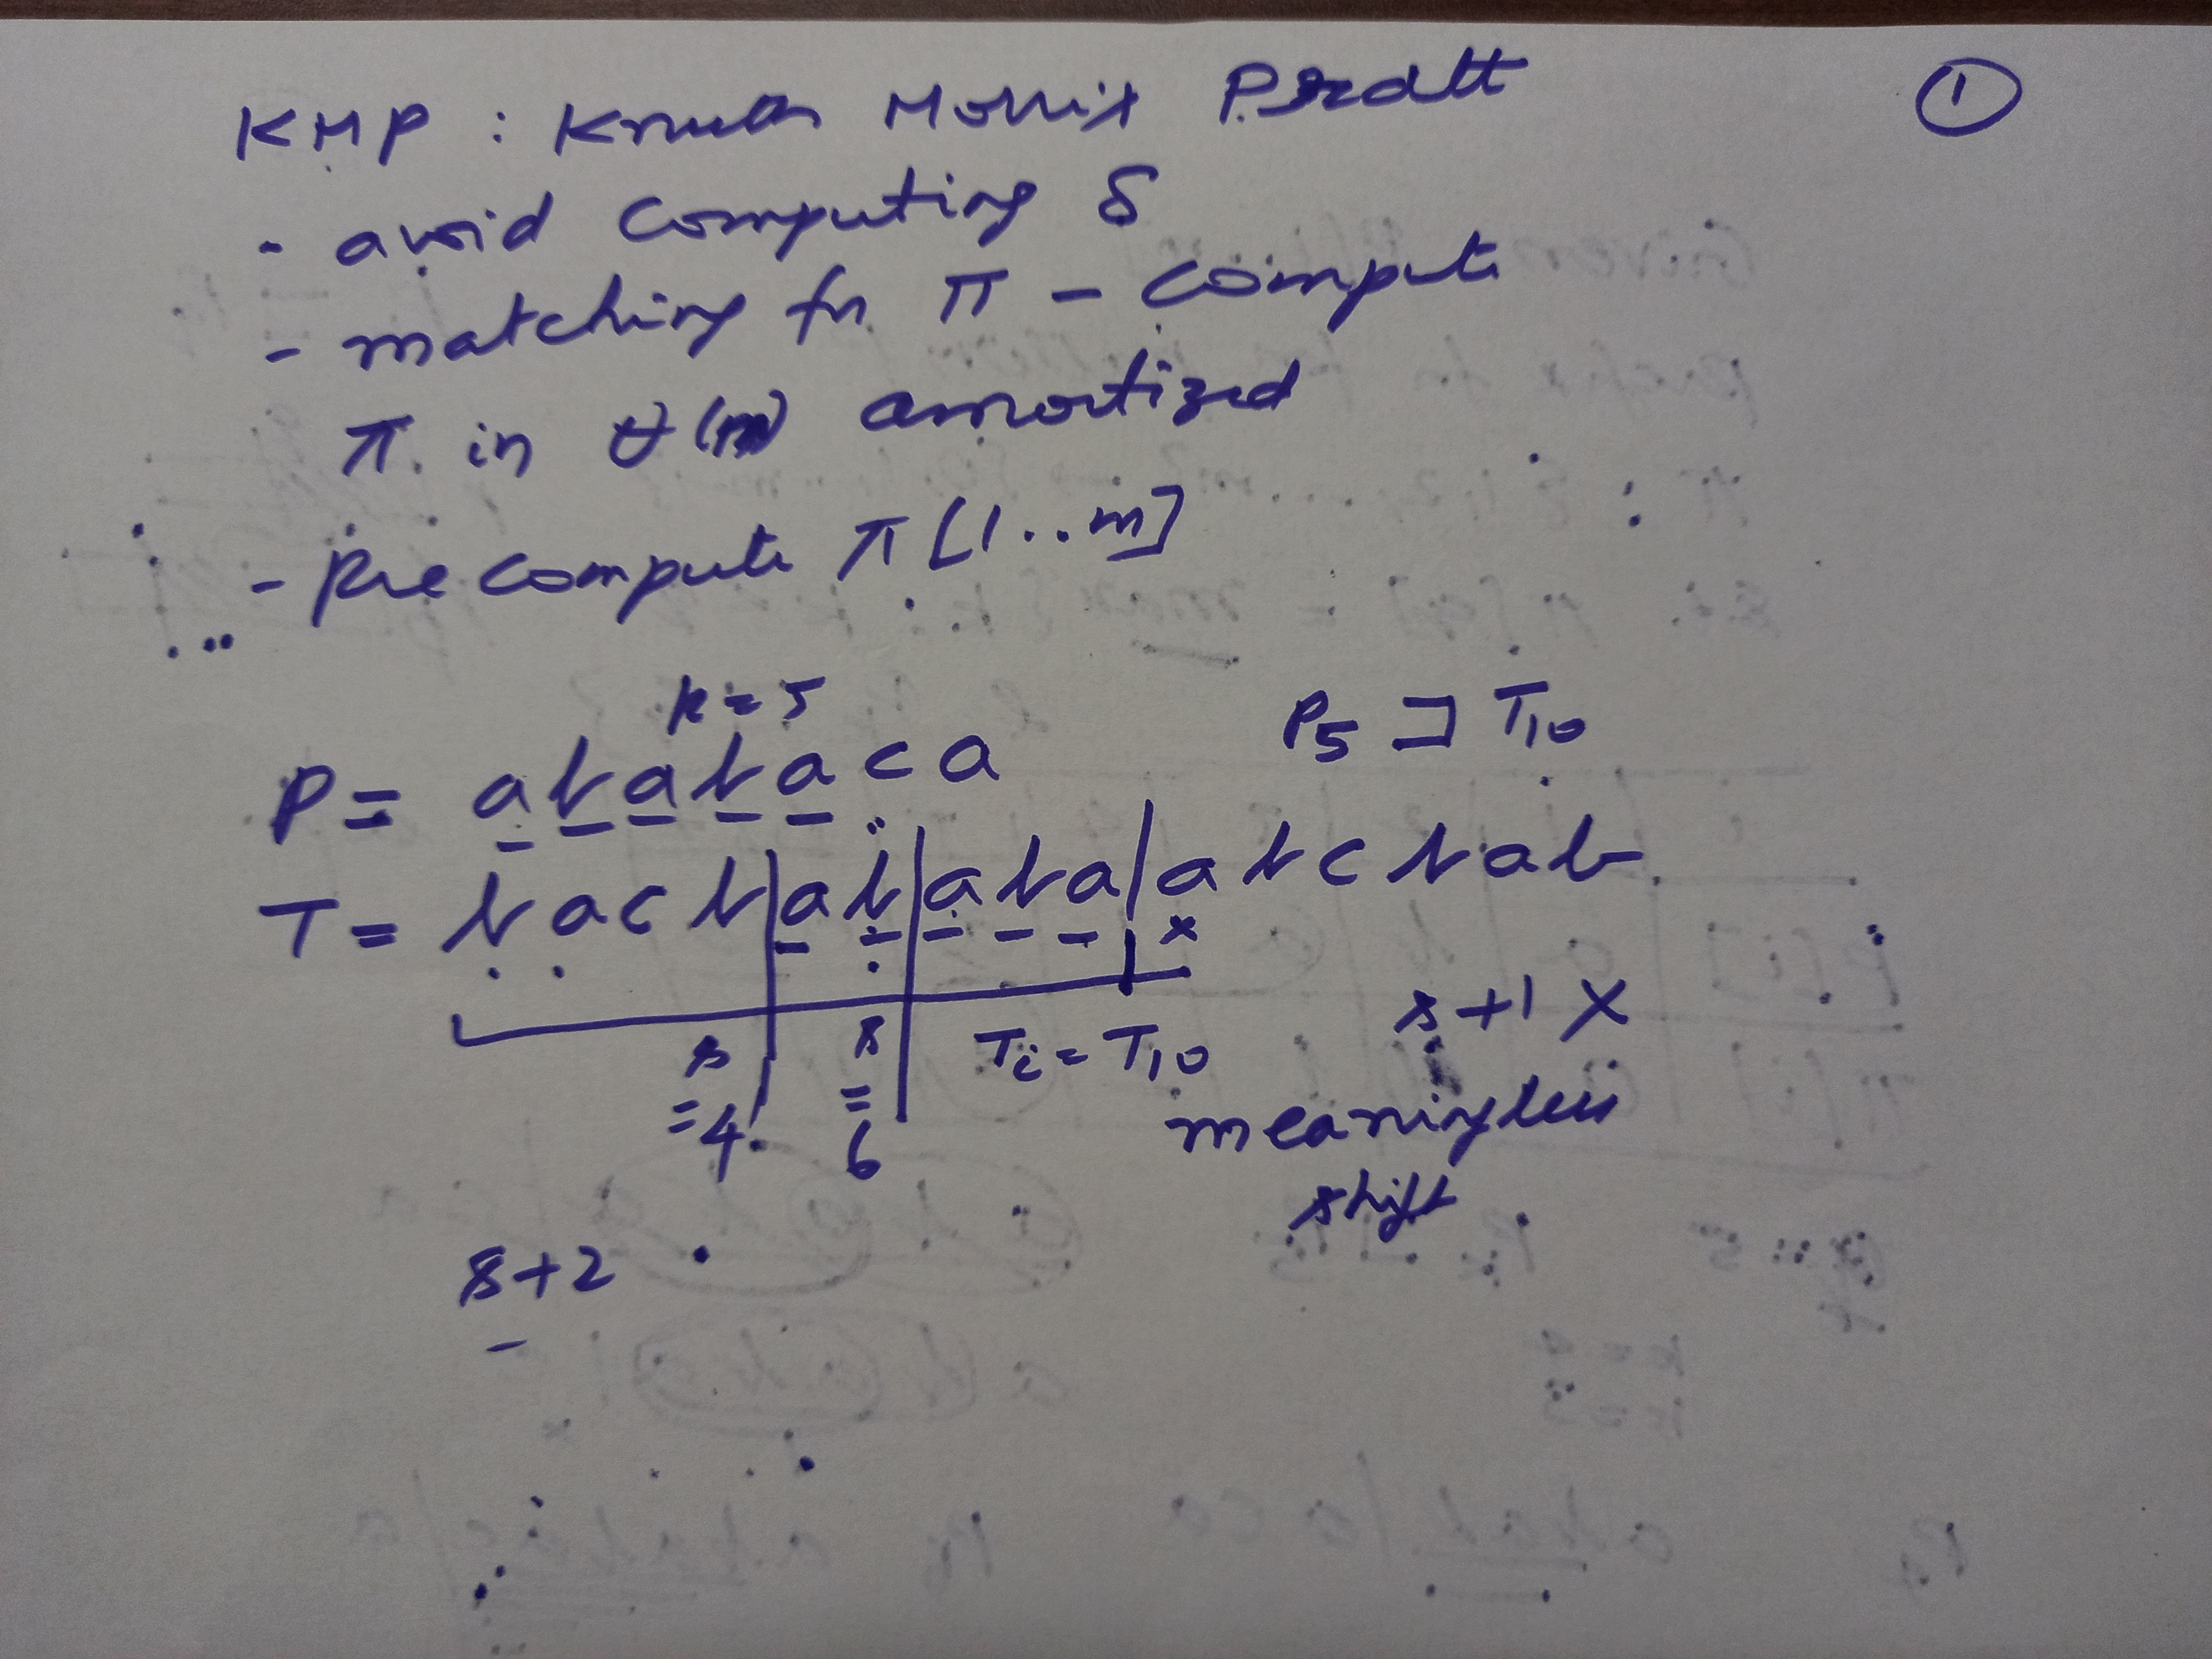 ①
KMP : Knuth Morris Pratt
- avoid computing δ
- matching fn π - compute
π in θ(m) amortized
- precompute π[1..m]
k=5
P = a b a b a c a
P5 ⊐ T10
T = b a c b | a b | a b a | a b c b a b
x
s = 4
s = 6
Ti = T10
s+1 X
meaningless
shift
s+2